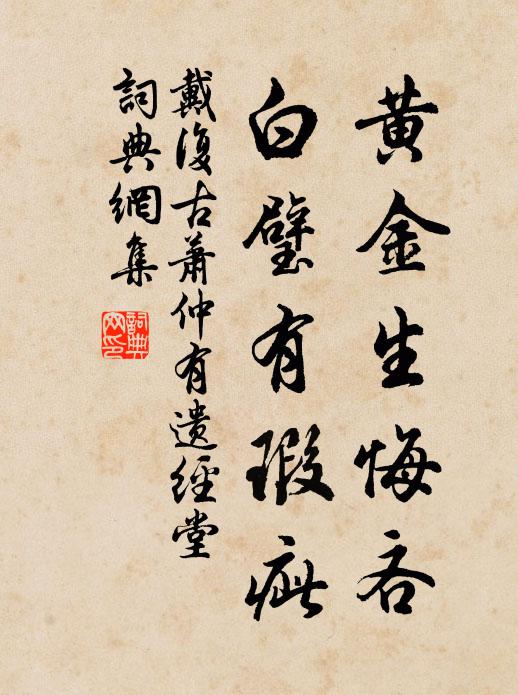 黄金生悔吝
白璧有瑕疵
戴復古蕭仲有遺經堂
詞典網集
詞典
网印